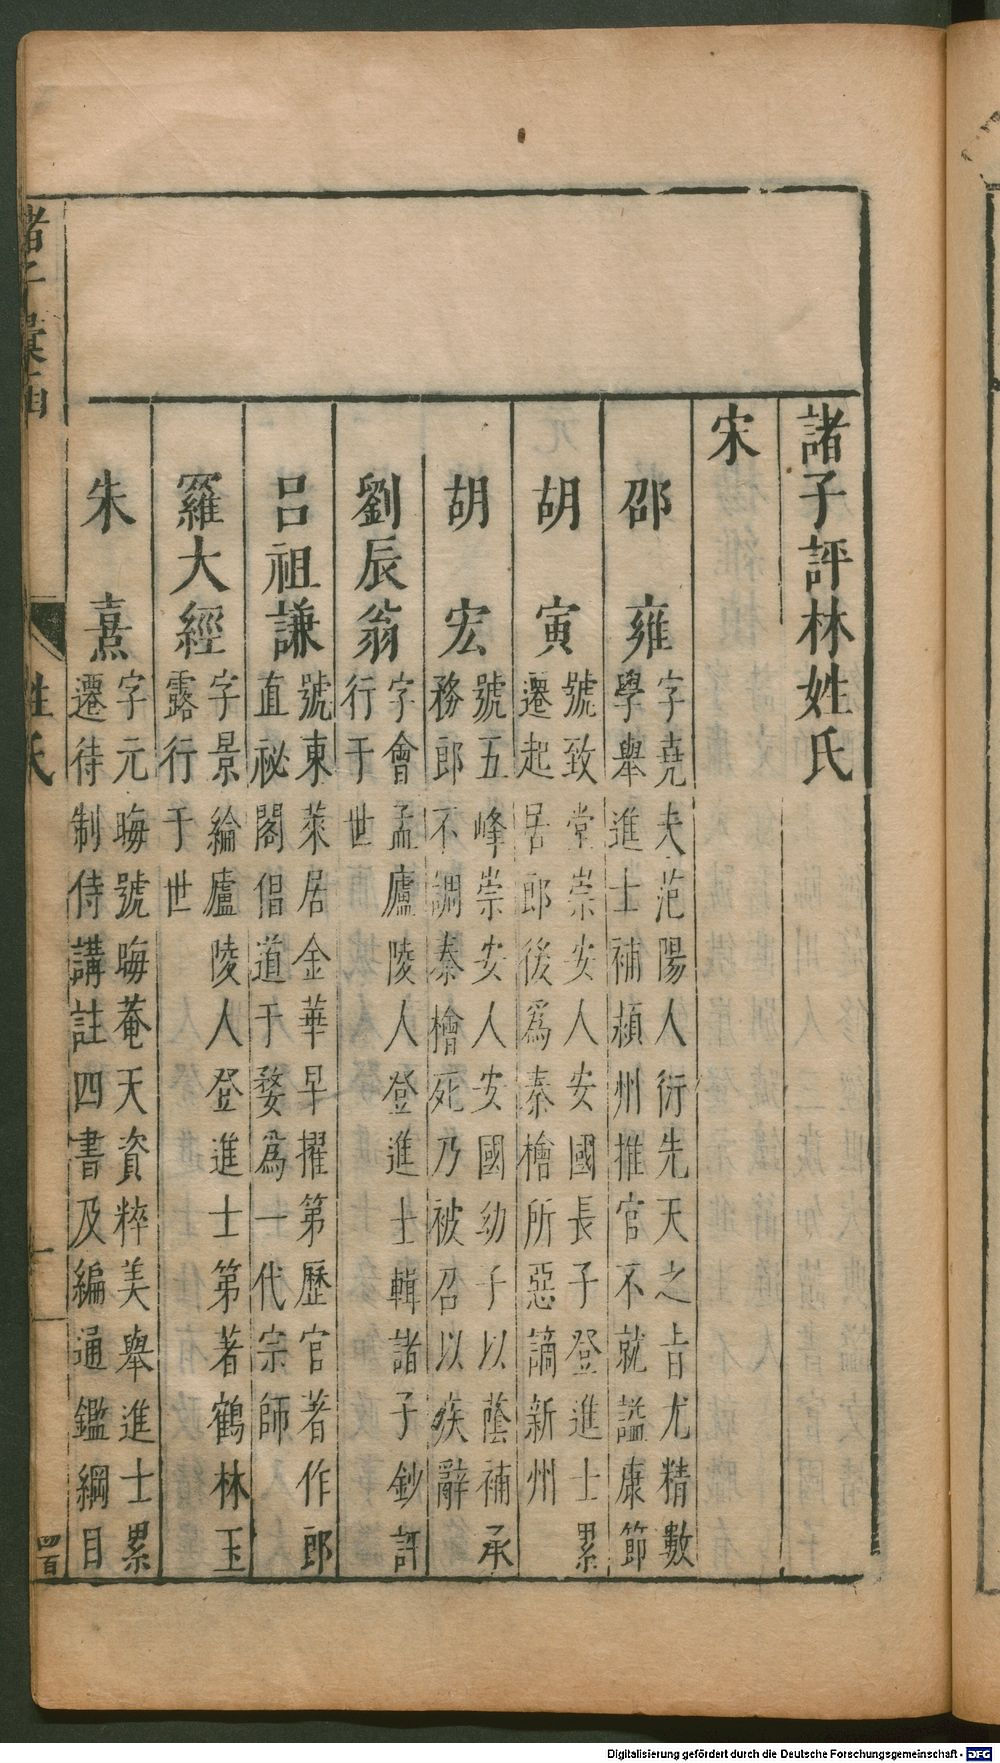 諸子評林姓氏
宋
邵雍
字堯夫范陽人衍先天之㫖尤精數
學舉進士補潁州推官不就謚康節
胡寅
號致堂崇安人安國長子登進士累
遷起居郎後爲秦檜所惡謫新州
胡宏
號五峰崇安人安國幼子以蔭補承
務郎不調秦檜死乃被召以疾辭
劉辰翁
字會孟廬陵人登進士輯諸子鈔評
行于世
吕祖謙
號東萊居金華早擢第歷官著作郎
直祕閣倡道于婺爲一代宗師
羅大經
字景綸廬陵人登進士第著鶴林玉
露行于世
朱熹
字元晦號晦菴天資粹美舉進士累
遷待制侍講註四書及編通鑑綱目
諸子彙函
姓氏
一
四百
Digitalisierung gefördert durch die Deutsche Forschungsgemeinschaft - DFG